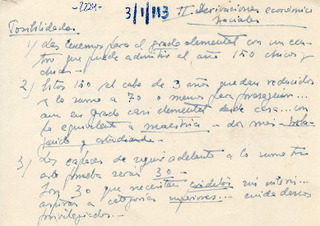 -2221-
3/1/113 II Derivaciones económico
sociales
Posibilidades.
1) las tenemos para el grado elemental con un cen-
tro que puede admitir el año 150 chicos y
chicas.
2) Estos 150 al cabo de 3 años quedan reducidos
a lo sumo a 70 o menos para proseguir...
aun en grado casi elemental desde casa... con
lo equivalente a maestría - dos más
y estudiando -
3) los capaces de seguir adelante a lo sumo tras
esta prueba serán 30 -
Los 30 que necesitan
aspiran a categorías superiores...
privilegiados.